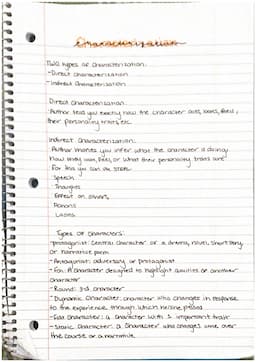 Characterization
Two types of characterization:
-Direct characterization
-Indirect characterization
Direct characterization:
Author tells you exactly how the character acts, looks, feels,
their personality traits, etc.
Indirect characterization:
Author wants you infer what the character is doing
how they act, feel, or what their personality traits are
For this you can use STEAL
Speech
Thoughts
Effect on others
Actions
Looks
Types of characters:
-protagonist: central character of a drama, novel, short story
or narrative poem
-Antagonist: adversary of protagonist
-Foil: A character designed to highlight qualities of another
character
-Round: 3-d character
-Dynamic character: character who changes in response
to the experience through which he/she passes
-Flat character: a character with 1 important trait
-Static character: a character who changes little over
the course of a narrative